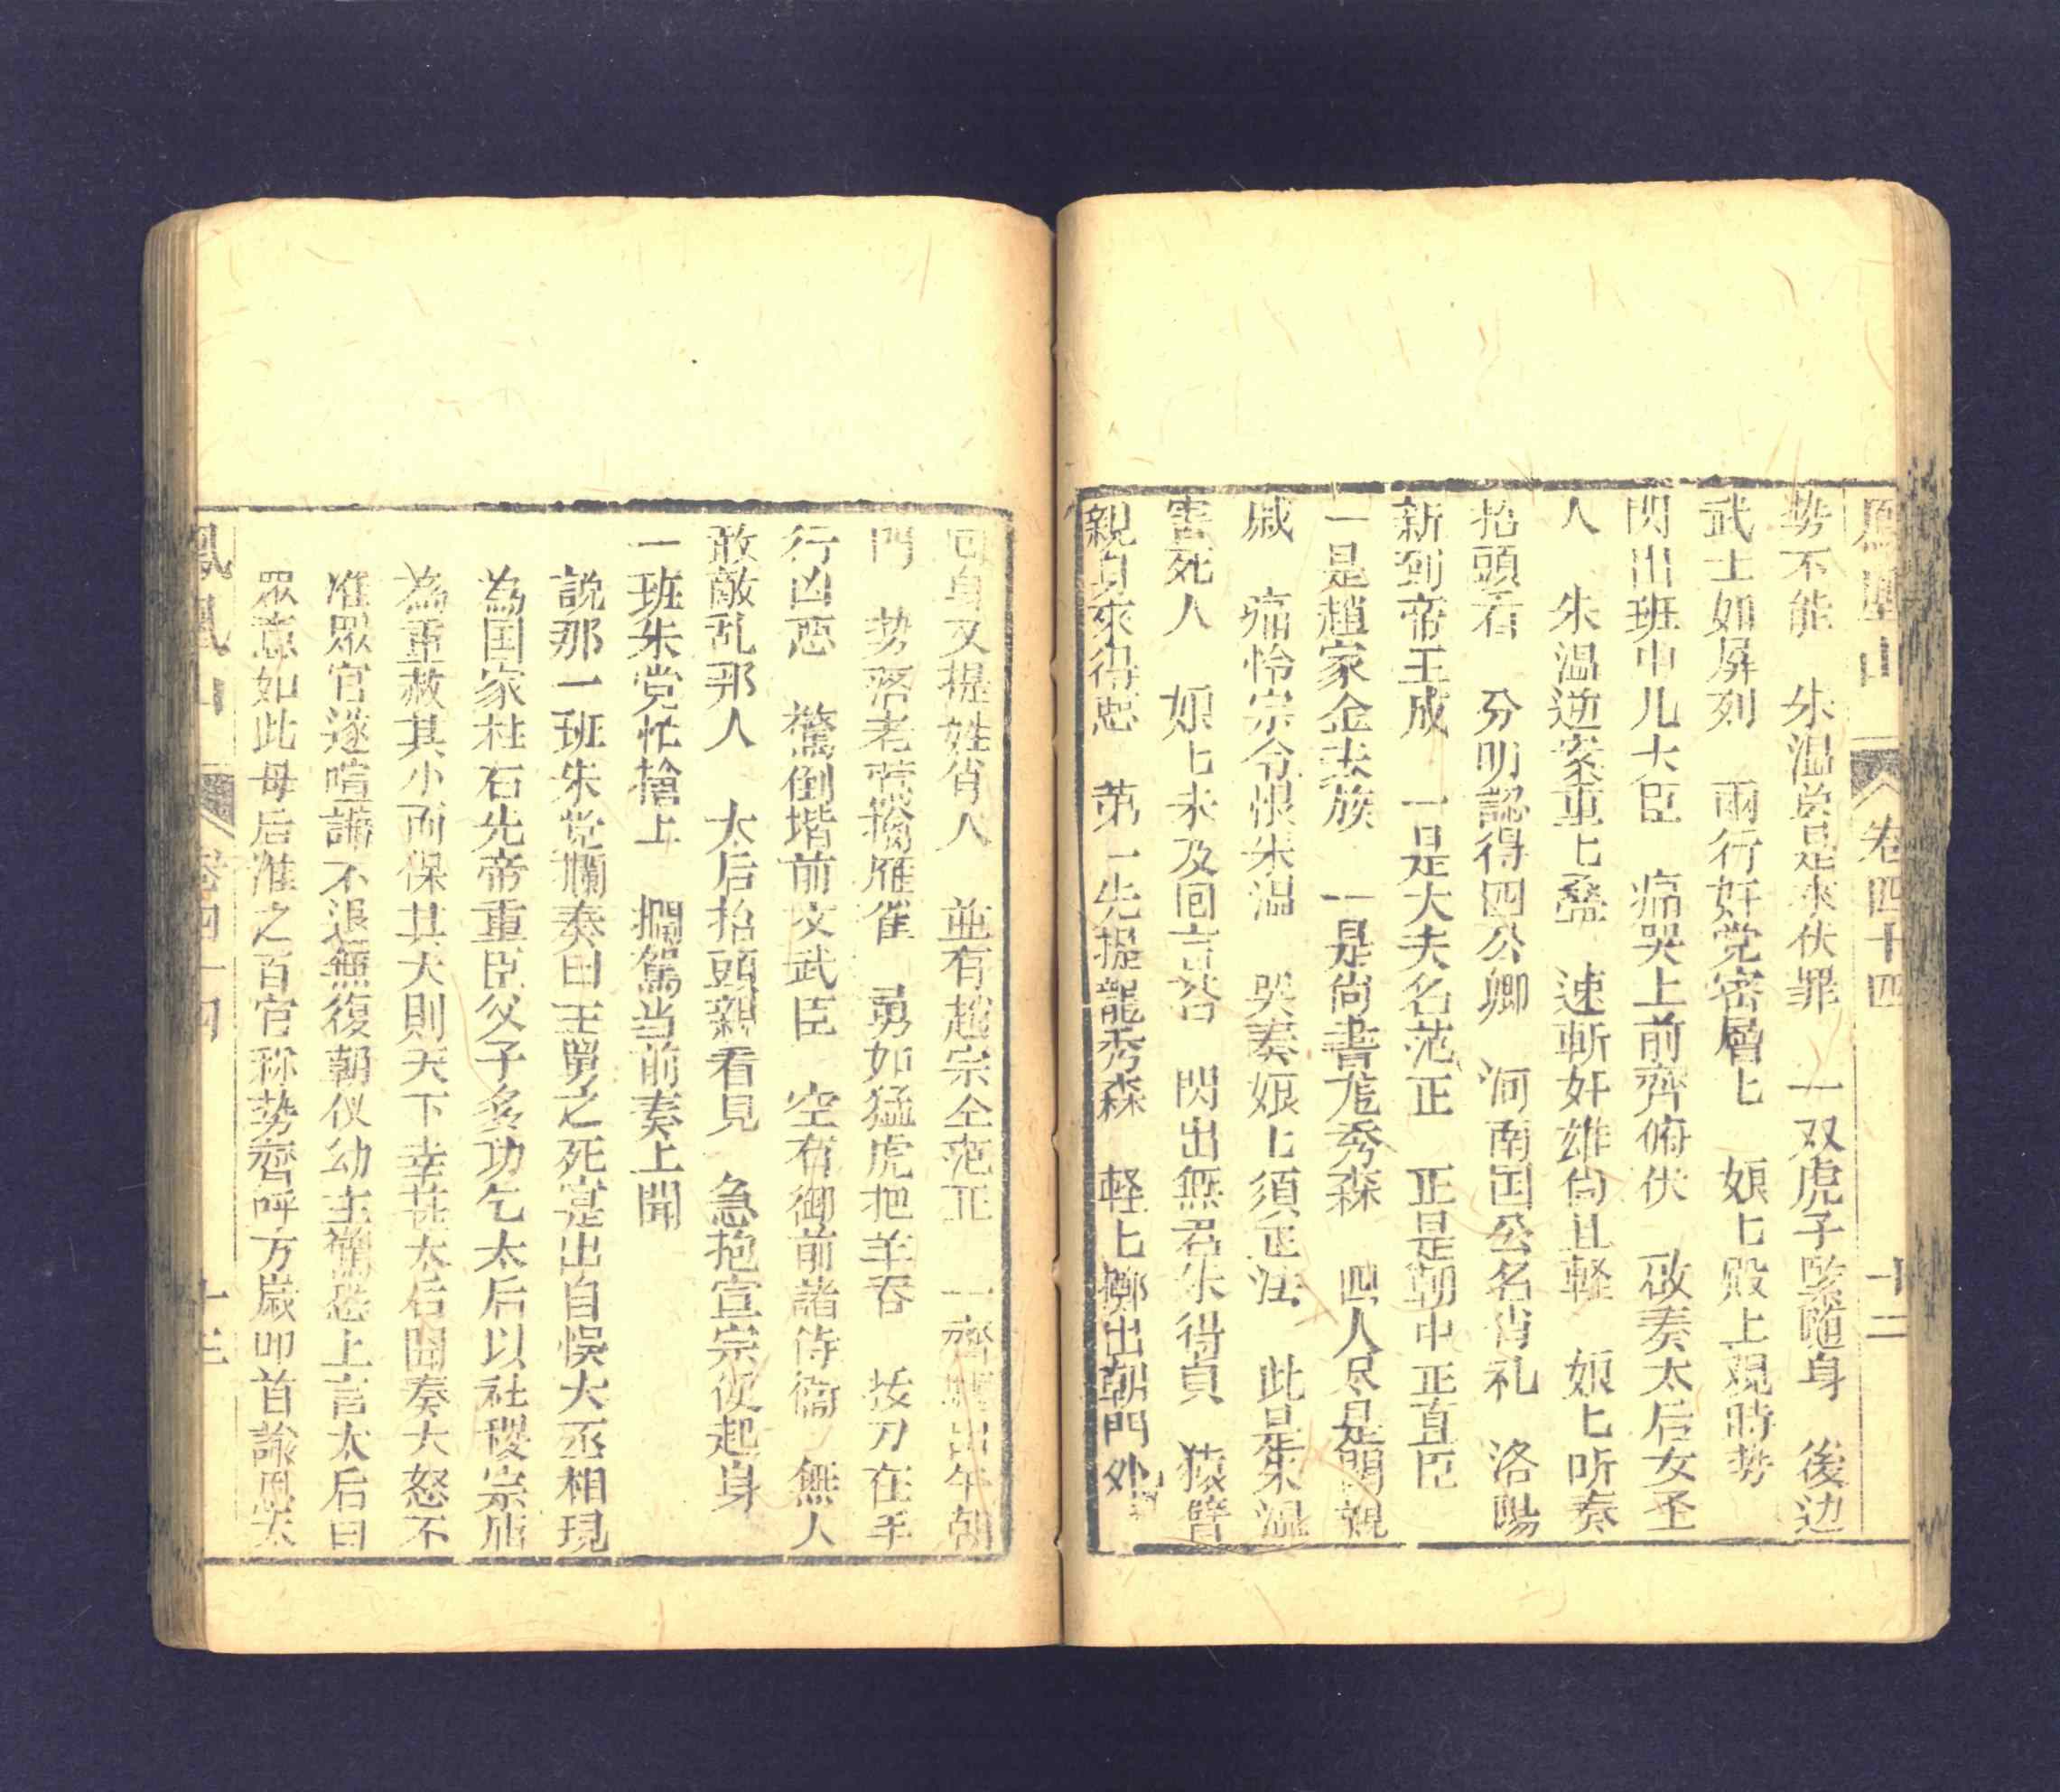 鳳凰山 卷四十四 十二
势不能 朱温曾是來伏罪 一双虎子緊隨身 後边
武士如屏列 兩行奸党密層匕 娘匕殿上观時势
閃出班中几大臣 痛哭上前齊俯伏 啟奏太后女圣
人 朱温逆案重匕叠 速斬奸雄尙且輕 娘匕听奏
抬頭看 分明認得四公卿 河南国公名肖礼 洛陽
新到帝王成 一是大夫名范正 正是朝中正直臣
一是趙家金夫族 一是尙書龙秀森 四人尽是開親
戚 痛怜宗令恨朱温 哭奏娘上須正法 此是朱温
害死人 娘匕未及囬言答 閃出無君朱得貞 猿臂
親身來得惡 第一先提龍秀森 輕上擲出朝門外
回身又提姓肖人 並有趙宗仝范正 一齊 出午朝
門 势落老鹰擒雁雀 勇如猛虎把羊吞 按刀在手
行凶恶 驚倒堦前文武臣 空有御前諸侍衛 無人
敢敵乱那人 太后抬頭親看見 急抱宣宗便起身
一班朱党忙搶上 攔駕当前奏上聞
說那一班朱党攔奏曰王舅之死寔出自悞大丞相現
為国家柱石先帝重臣父子多功乞太后以社稷宗庙
為重赦其小而保其大則天下幸甚太后聞奏大怒不
准眾官遂喧譁不退無復朝仪幼主驚恐上言太后曰
眾意如此母后准之百官称势齊呼万嵗叩首謝恩太
鳳凰山 卷四十四 十三